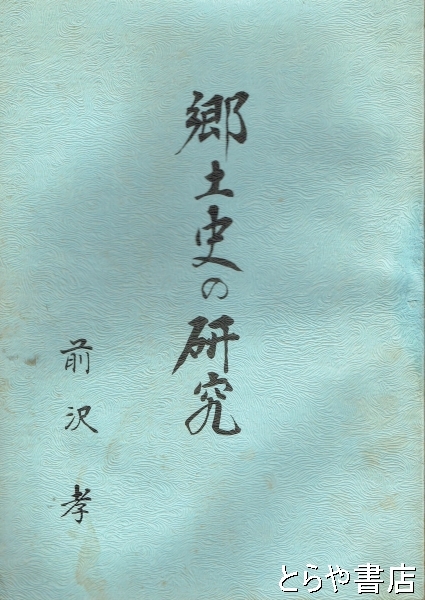 郷土史の研究
前沢孝
とらや書店